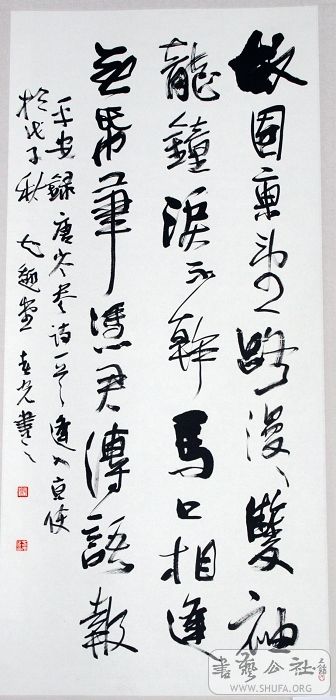 故園東望路漫漫雙袖
龍鐘淚不幹馬上相逢
無帋筆憑君傳語報
平安錄唐岑參詩一首逢入京使
於戊子秋
書藝公社
WWW.SHUFA.ORG